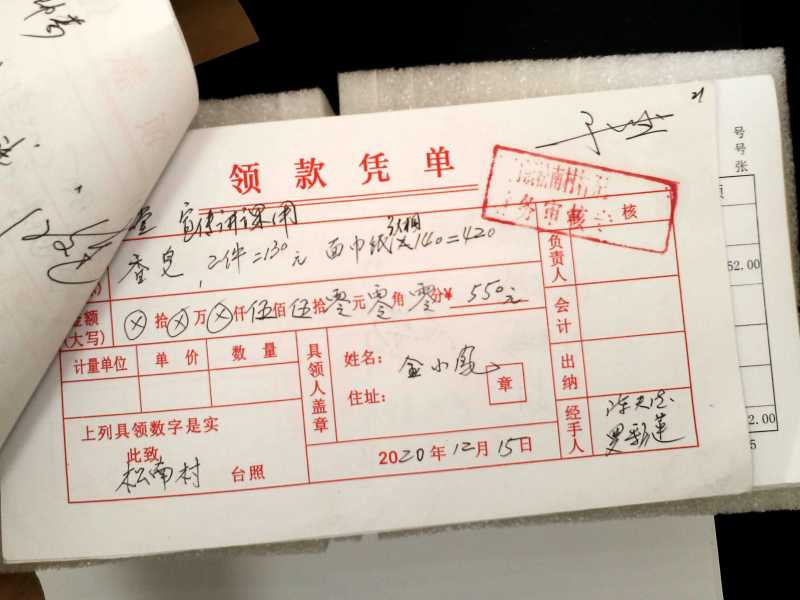 21
领款凭单
务审核
宣传讲课用
核
香皂,2件=130元 面巾纸3箱×140=420
负责人
金额
(大写)
⊗拾⊗万⊗仟伍佰伍拾零元零角零分¥ 550元
会计
计量单位 单价 数量
具领人盖章
姓名:
金小凤
住址:
章
出纳
上列具领数字是实
此致
松南村 台照
2020年12月15日
经手人
号
号
张
52.00
2.00
5